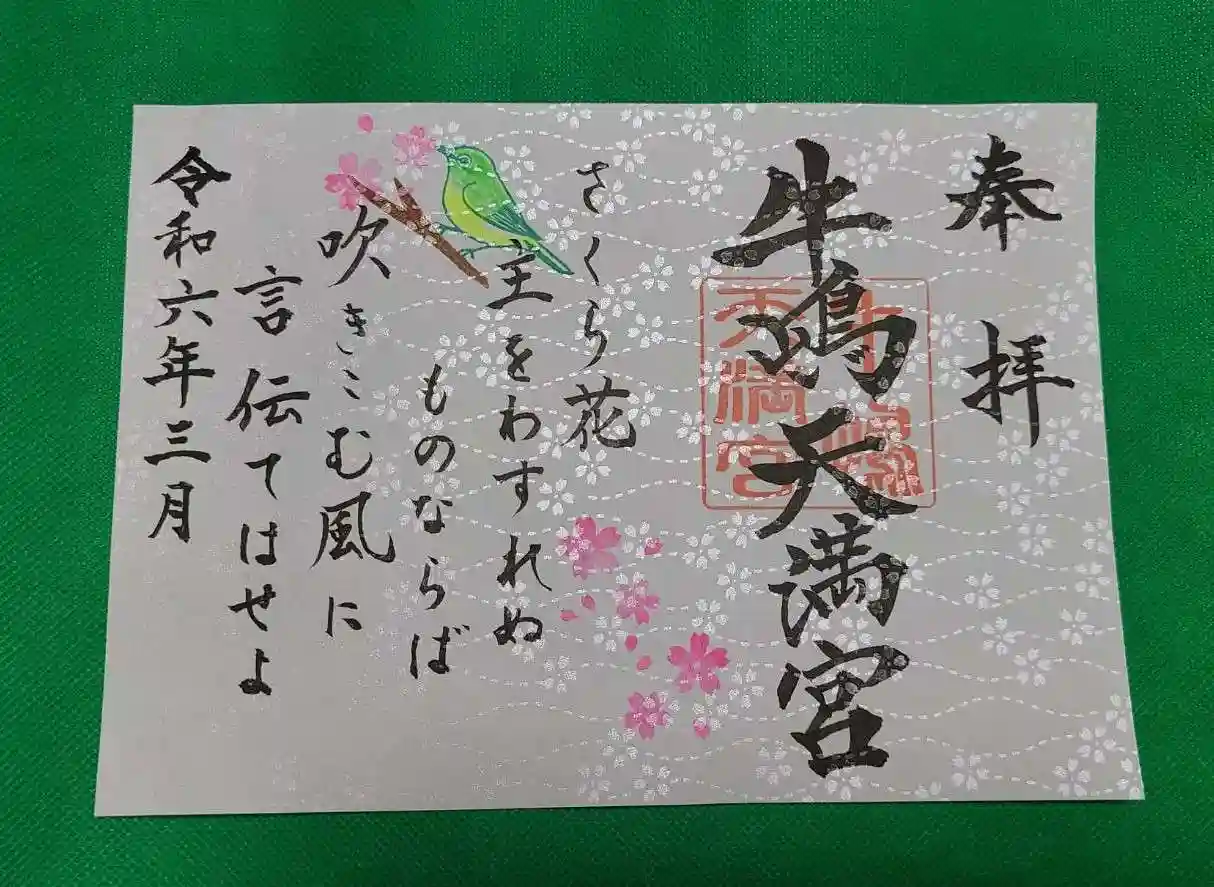 奉拝
牛嶋天満宮
天満宮
さくら花
主をわすれぬ
ものならば
吹きこむ風に
言伝てはせよ
令和六年三月